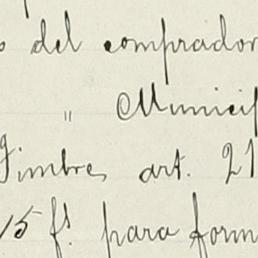 del comprador
" Munici
Timbre, art. 21
15 fs. para form